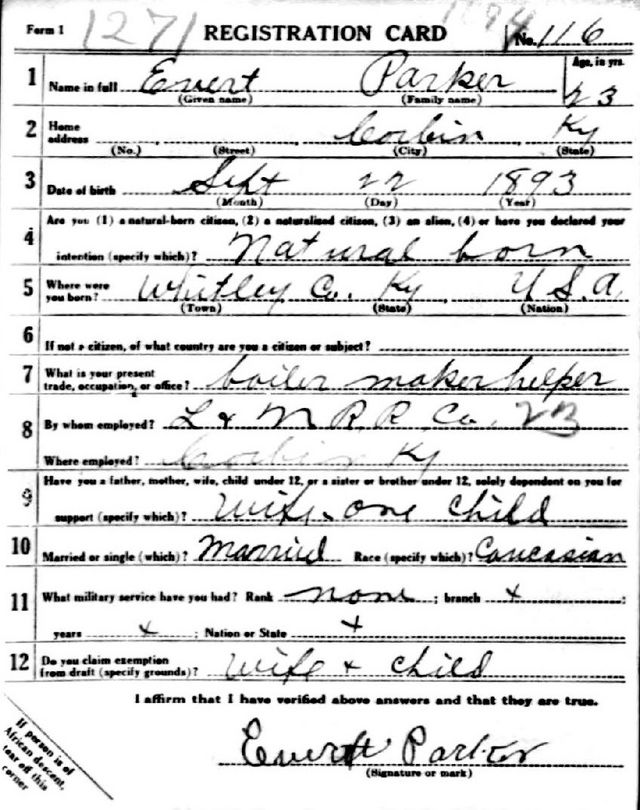 Form 1 1271 REGISTRATION CARD No. 116
1 Name in full Evert Parker Age, in yrs. 23
(Given name) (Family name)
2 Home address Corbin Ky
(No.) (Street) (City) (State)
3 Date of birth Sept 22 1893
(Month) (Day) (Year)
4 Are you (1) a natural-born citizen, (2) a naturalized citizen, (3) an alien, (4) or have you declared your
intention (specify which)? Natural born
5 Where were you born? Whitley Co. Ky U S. A
(Town) (State) (Nation)
6 If not a citizen, of what country are you a citizen or subject?
7 What is your present trade, occupation, or office? boiler maker helper
8 By whom employed? L & N R. R. Co. 23
Where employed? Corbin Ky
9 Have you a father, mother, wife, child under 12, or a sister or brother under 12, solely dependent on you for
support (specify which)? Wife & one child
10 Married or single (which)? Married Race (specify which)? Caucasian
11 What military service have you had? Rank none ; branch x ;
years x ; Nation or State x
12 Do you claim exemption from draft (specify grounds)? Wife + child
I affirm that I have verified above answers and that they are true.
Everett Parker
(Signature or mark)
If person is of
African descent,
tear off this
corner